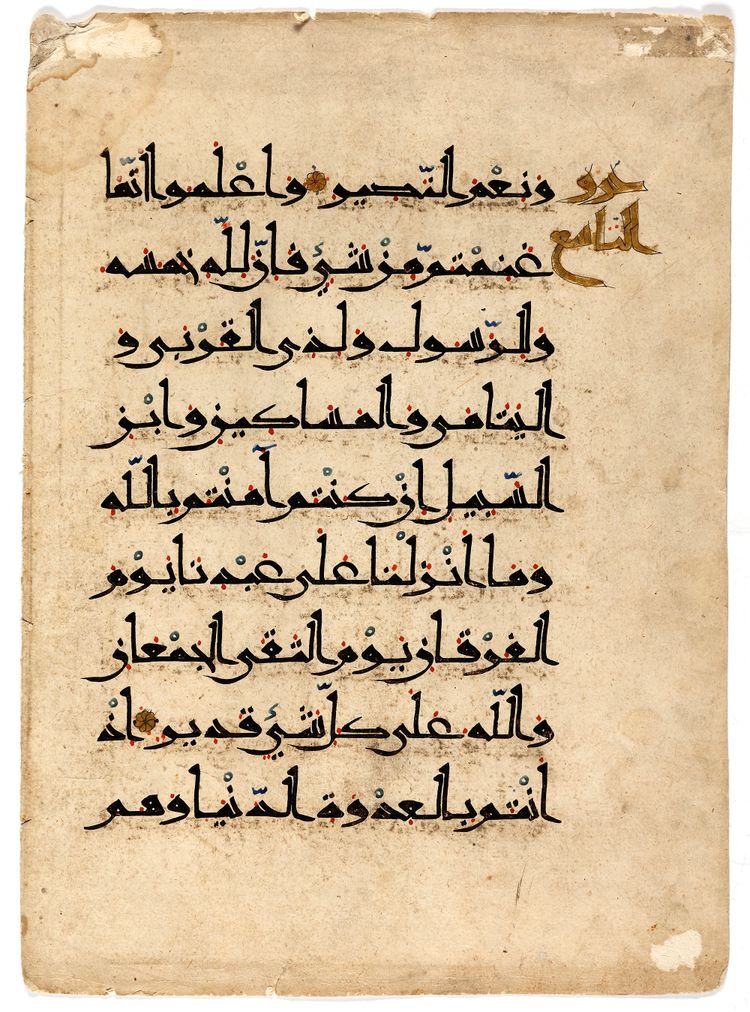 ونعم النصير واعلموا انما
جزو
التاسع
غنمتم من شيء فان لله خمسه
وللرسول ولذي القربى و
اليتامى والمساكين وابن
السبيل ان كنتم آمنتم بالله
وما انزلنا على عبدنا يوم
الفرقان يوم التقى الجمعان
والله على كل شيء قدير اذ
انتم بالعدوة الدنيا وهم